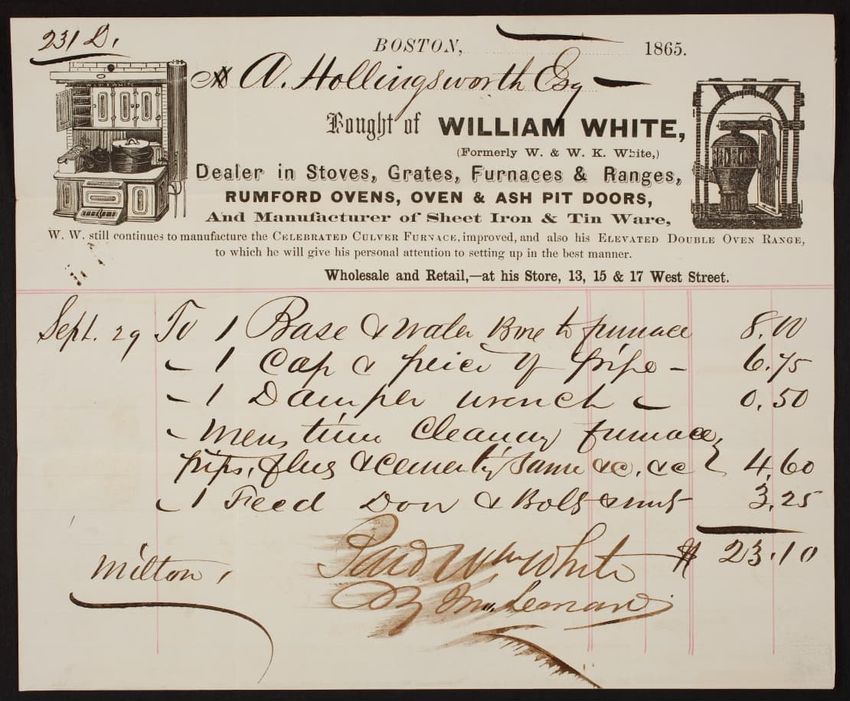 231 D.
BOSTON, 1865.
A. Hollingsworth Esq
Bought of WILLIAM WHITE,
(Formerly W. & W. K. White,)
Dealer in Stoves, Grates, Furnaces & Ranges,
RUMFORD OVENS, OVEN & ASH PIT DOORS,
And Manufacturer of Sheet Iron & Tin Ware,
W. W. still continues to manufacture the CELEBRATED CULVER FURNACE, improved, and also his ELEVATED DOUBLE OVEN RANGE,
to which he will give his personal attention to setting up in the best manner.
Wholesale and Retail,—at his Store, 13, 15 & 17 West Street.
Sept. 29 To 1 Base & Water Bore to furnace 8.00
- 1 Cap & peice of pipe - 6.75
- 1 Damper wrench - 0.50
- Mens time Cleaning furnace,
pips, flus & cementing same &c. &c 4.60
- 1 Feed Dor & Bolt & nut 3.25
$ 23.10
Milton,
Paid Wm White
By